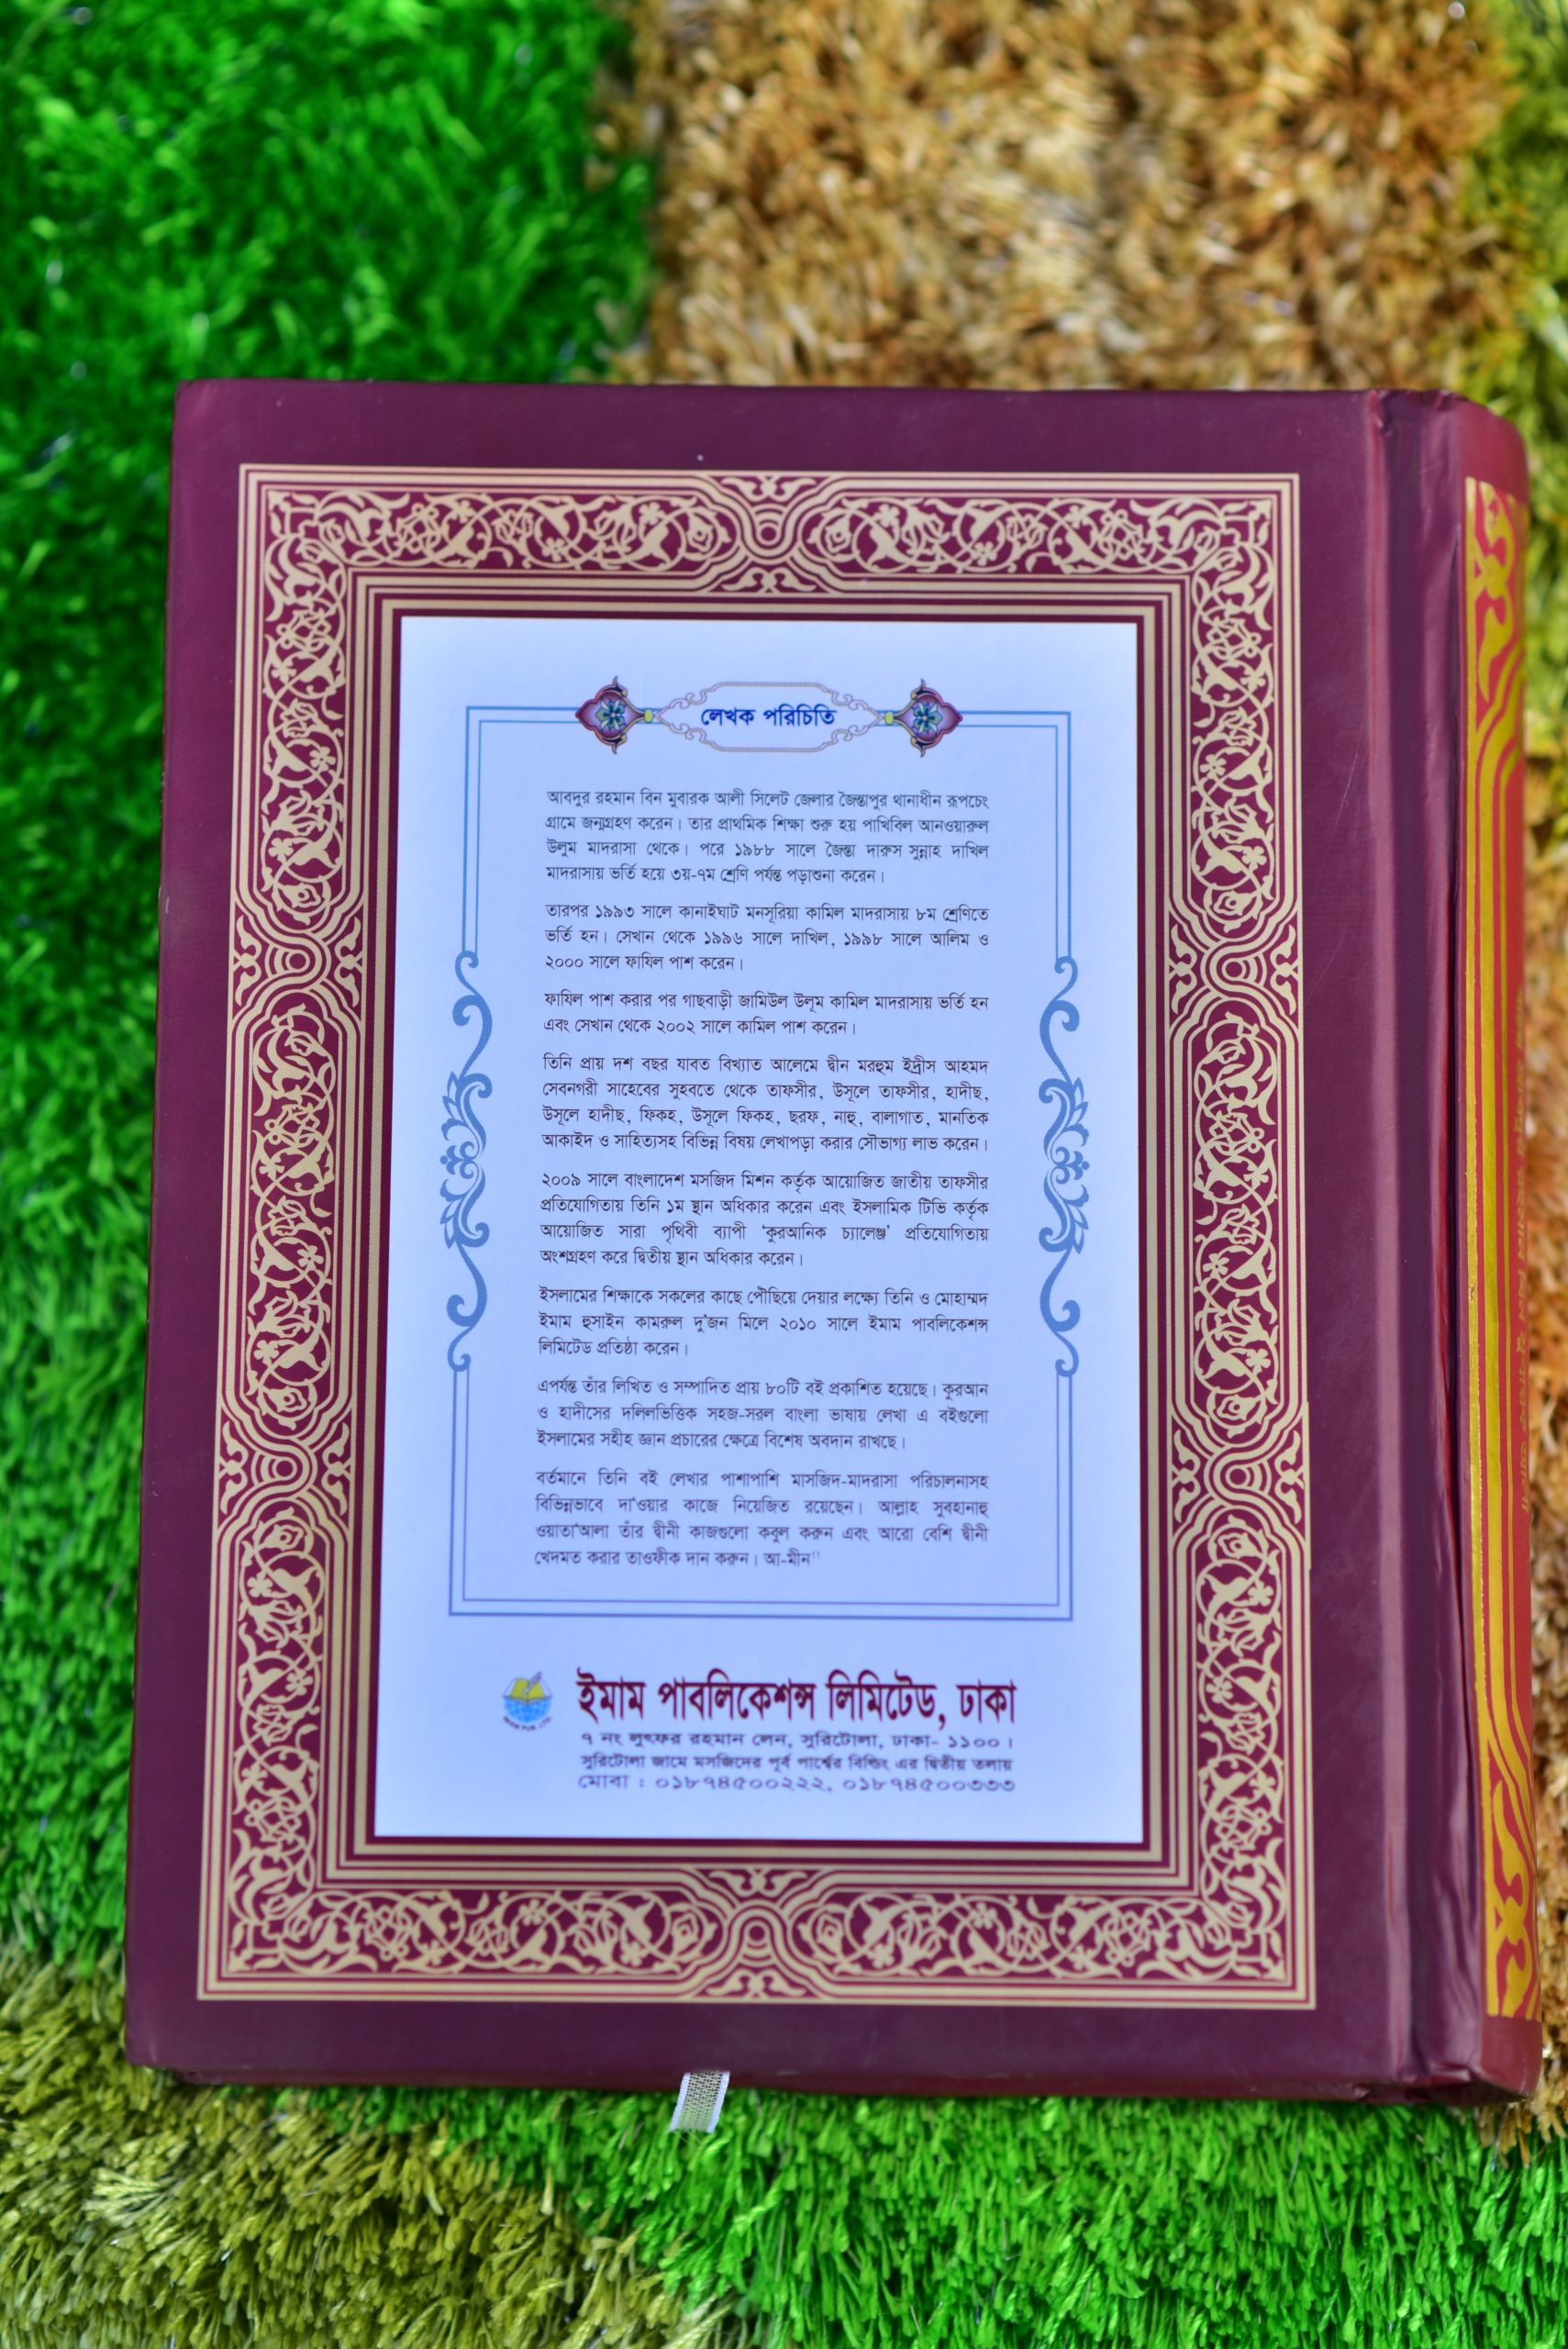 লেখক পরিচিতি
আবদুর রহমান বিন মুবারক আলী সিলেট জেলার জৈন্তাপুর থানাধীন রূপচেং
গ্রামে জন্মগ্রহণ করেন। তার প্রাথমিক শিক্ষা শুরু হয় পাখিবিল আনওয়ারুল
উলুম মাদরাসা থেকে। পরে ১৯৮৮ সালে জৈন্তা দারুস সুন্নাহ দাখিল
মাদরাসায় ভর্তি হয়ে ৩য়-৭ম শ্রেণি পর্যন্ত পড়াশুনা করেন।
তারপর ১৯৯৩ সালে কানাইঘাট মনসূরিয়া কামিল মাদরাসায় ৮ম শ্রেণিতে
ভর্তি হন। সেখান থেকে ১৯৯৬ সালে দাখিল, ১৯৯৮ সালে আলিম ও
২০০০ সালে ফাযিল পাশ করেন।
ফাযিল পাশ করার পর গাছবাড়ী জামিউল উলূম কামিল মাদরাসায় ভর্তি হন
এবং সেখান থেকে ২০০২ সালে কামিল পাশ করেন।
তিনি প্রায় দশ বছর যাবত বিখ্যাত আলেমে দ্বীন মরহুম ইদ্রীস আহমদ
সেবনগরী সাহেবের সুহবতে থেকে তাফসীর, উসূলে তাফসীর, হাদীছ,
উসূলে হাদীছ, ফিকহ, উসূলে ফিকহ, ছরফ, নাহু, বালাগাত, মানতিক
আকাইদ ও সাহিত্যসহ বিভিন্ন বিষয় লেখাপড়া করার সৌভাগ্য লাভ করেন।
২০০৯ সালে বাংলাদেশ মসজিদ মিশন কর্তৃক আয়োজিত জাতীয় তাফসীর
প্রতিযোগিতায় তিনি ১ম স্থান অধিকার করেন এবং ইসলামিক টিভি কর্তৃক
আয়োজিত সারা পৃথিবী ব্যাপী ‘কুরআনিক চ্যালেঞ্জ’ প্রতিযোগিতায়
অংশগ্রহণ করে দ্বিতীয় স্থান অধিকার করেন।
ইসলামের শিক্ষাকে সকলের কাছে পৌছিয়ে দেয়ার লক্ষ্যে তিনি ও মোহাম্মদ
ইমাম হুসাইন কামরুল দু'জন মিলে ২০১০ সালে ইমাম পাবলিকেশন্স
লিমিটেড প্রতিষ্ঠা করেন।
এপর্যন্ত তাঁর লিখিত ও সম্পাদিত প্রায় ৮০টি বই প্রকাশিত হয়েছে। কুরআন
ও হাদীসের দলিলভিত্তিক সহজ-সরল বাংলা ভাষায় লেখা এ বইগুলো
ইসলামের সহীহ জ্ঞান প্রচারের ক্ষেত্রে বিশেষ অবদান রাখছে।
বর্তমানে তিনি বই লেখার পাশাপাশি মাসজিদ-মাদরাসা পরিচালনাসহ
বিভিন্নভাবে দা'ওয়ার কাজে নিয়েজিত রয়েছেন। আল্লাহ সুবহানাহু
ওয়াতা'আলা তাঁর দ্বীনী কাজগুলো কবুল করুন এবং আরো বেশি দ্বীনী
খেদমত করার তাওফীক দান করুন। আ-মীন"
ইমাম পাবলিকেশন্স লিমিটেড, ঢাকা
৭ নং লুৎফর রহমান লেন, সুরিটোলা, ঢাকা- ১১০০।
সুরিটোলা জামে মসজিদের পূর্ব পার্শ্বের বিল্ডিং এর দ্বিতীয় তলায়
মোবা : ০১৮৭৪৫০০২২২, ০১৮৭৪৫০০৩৩৩